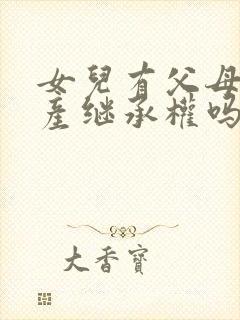 女兒有父母
産继承權吗
大香寶